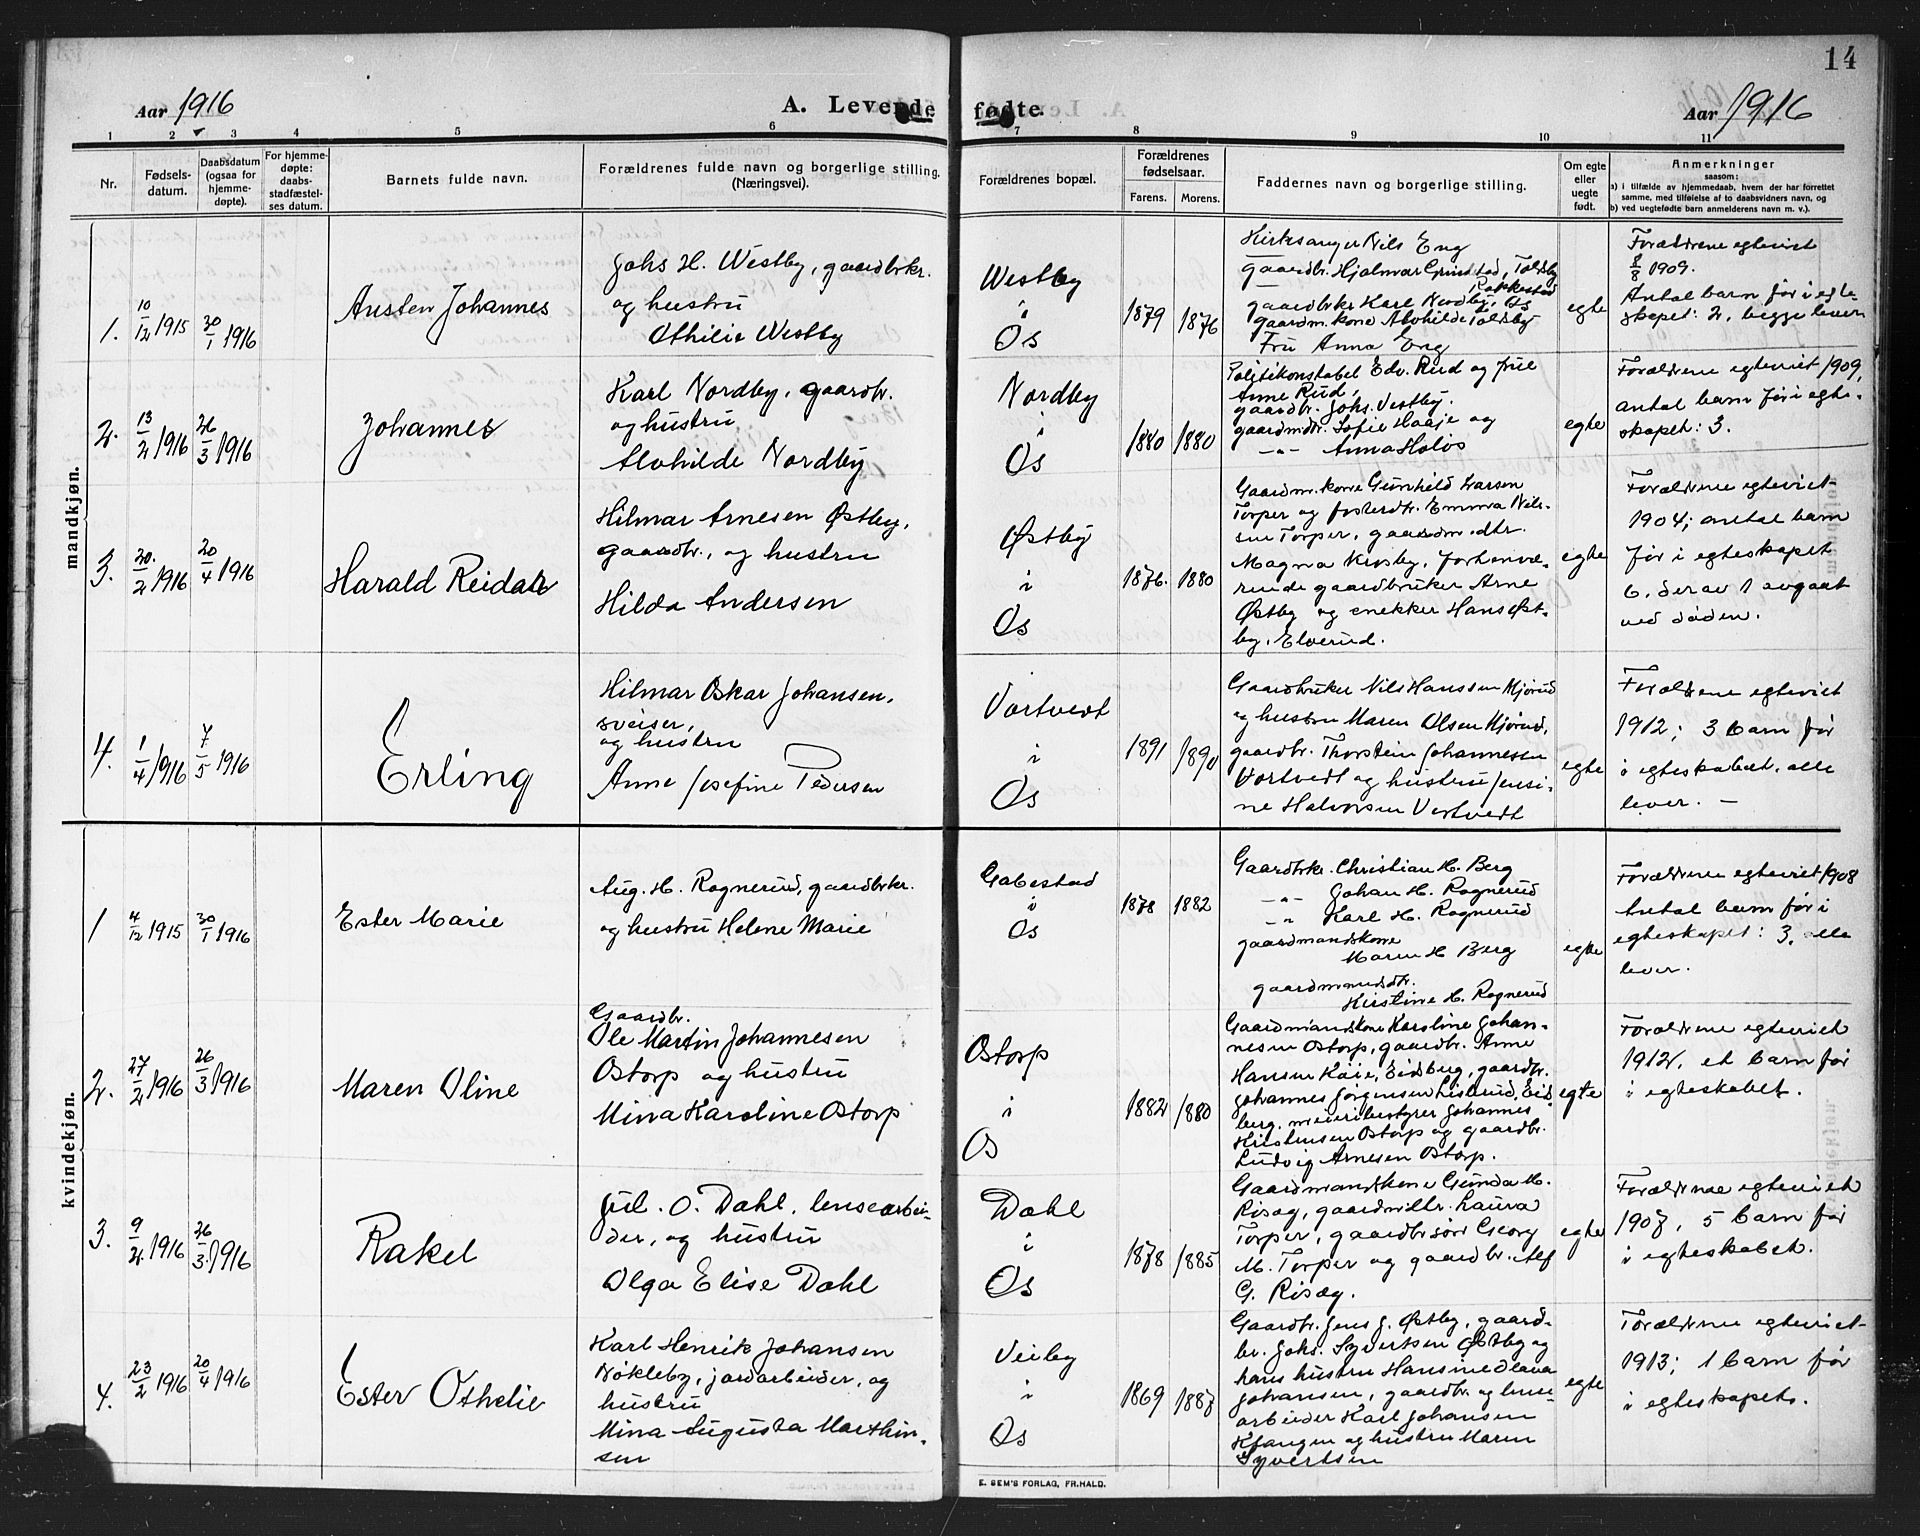 14
Aar 1916
A. Levende fødte.
Aar 1916
1 2 3 4 5 6 7 8 9 10 11
Nr.
Fødselsdatum.
Daabsdatum (ogsaa for hjemmedøpte).
For hjemmedøpte: daabsstadfæstelses datum.
Barnets fulde navn.
Forældrenes fulde navn og borgerlige stilling.
(Næringsvei).
Forældrenes bopæl.
Forældrenes fødselsaar.
Farens. Morens.
Faddernes navn og borgerlige stilling.
Om egte eller uegte født.
Anmerkninger
saasom:
a) i tilfælde av hjemmedaab, hvem der har forrettet
samme, med tilføielse af to daabsvidners navn, og
b) ved uegtefødte barn anmelderens navn m. v.).
mandkjøn.
1. 10/12 1915 30/1 1916
Austen Johannes
Johs H. Westby, gaardbrkr.
og hustru
Othilie Westby
Westby
i
Os
1879 1876
Kirksanger Nils Eng
gaardbr. Hjalmar Grimstad, Toldsby
Rakkestad
gaardbrkr Karl Nordby, Os
gaardm.kone Alvhilde Toldsby
Fru Anna Eng
egte
Forældrene egteviet
8/8 1909.
Antal barn før i egte-
skapet: 2, begge lever
2. 13/2 1916 26/3 1916
Johannes
Karl Nordby, gaardbr.
og hustru
Alvhilde Nordby
Nordby
i
Os
1880 1880
Politikonstabel Edv. Rud og frue
Anne Rud,
gaardbr. Johs. Vestby.
gaardmdtr. Sofie Haaje og
-"- Anna Holøs
egte
Forældrene egteviet 1909,
antal barn før i egte-
skapet: 3.
3. 20/2 1916 20/4 1916
Harald Reidar
Hilmar Arnesen Østby,
gaardbr., og hustru
Hilda Andersen
Østby
i
Os
1876. 1880
Gaardm.kone Gunhild Larsen
Torper og fosterdtr. Emma Nil-
sen Torper, gaardm.dtr.
Magna Krosby, forhenvæ-
rende gaardbruker Arne
Østby og enekker Hans Øst-
by, Elverud.
egte
Forældrene egteviet
1904; antal barn
før i egteskapet
6, derav 1 avgaat
ved døden.
4. 1/4 1916 7/5 1916
Erling
Hilmar Oskar Johansen,
sveiser,
og hustru
Anne Josefine Pedersen
Vortvedt
i
Os
1891 1890
Gaardbruker Nils Hanssen Mjørud
og hustru Maren Olsen Mjørud,
gaardbr. Thorstein Johannessen
Vortvedt og hustru Jensi-
ne Halvorsen Vortvedt
egte
Forældrene egteviet
1912; 3 barn før
i egteskabet, alle
lever. —
kvindekjøn.
1 4/12 1915 30/1 1916
Ester Marie
Aug. H. Rognerud, gaardbrkr.
og hustru Helene Marie
Gabestad
i
Os
1878 1882
Gaardbrkr. Christian H. Berg
-"- Johan H. Rognerud
-"- Karl H. Rognerud
gaardmandskone
Maren H Berg
gaardmandsdtr.
Kirstine H. Rognerud
egte
Forældrene egteviet 1908
Antal barn før i
egteskapet: 3, alle
lever.
2. 27/2 1916 26/3 1916
Maren Oline
Gaardbr.
Ole Martin Johannesen
Ostorp og hustru
Mina Karoline Ostorp
Ostorp
i
Os
1882 1880
Gaardmandskone Karoline Johan-
nesen Ostorp, gaardbr. Anne
Hansen Kaie, Eidsberg, gaardbr.
Johannes Jørgensen Lislerud, Eids-
berg, meieribestyrer Johannes
Kristensen Ostorp og gaardbr.
Ludvig Arnesen Ostorp.
egte
Forældrene egteviet
1912, et barn før
i egteskabet.
3. 9/2 1916 26/3 1916
Rakel
Jul. O. Dahl, lensearbei-
der, og hustru
Olga Elise Dahl
Dahl
i
Os
1878 1885
Gaardmandskone Gunda M.
Risæg, gaardm.dtr. Laura
Torper, gaardbr.søn Georg
M. Torper og gaardbr. Alf
G. Risæg.
egte
Forældrene egteviet
1907, 5 barn før
i egteskabet.
4. 23/2 1916 20/4 1916
Ester Othelie
Karl Henrik Johansen
Nøkleby, jordarbeider, og
hustru
Mina Augusta Marthin-
sen
Veiby
i
Os
1869 1887
Gaardbr. Jens J. Østby, gaard-
br. Johs. Syvertsen Østby og
hans hustru Hansine Olava
Johansen, gaardbr. og lense-
arbeider Karl Johansen
Kfangen og hustru Maren
Syvertsen
egte
Forældrene egteviet
1913; 1 barn før
i egteskapet.
E. SEM'S FORLAG, FR.HALD.